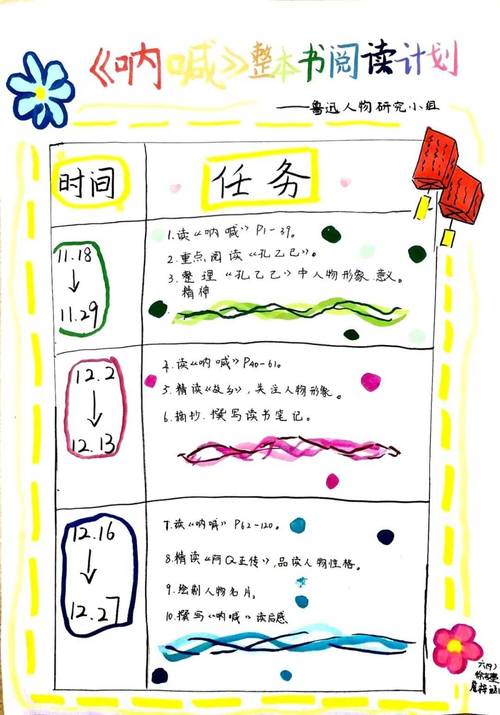 《呐喊》整本书阅读计划
——鲁迅人物研究小组
时间
任务
11.18
↓
11.29
1.读《呐喊》P1-39。
2.重点阅读《孔乙己》。
3.整理《孔乙己》中人物形象、意义。
精神
12.2
↓
12.13
4.读《呐喊》P40-61。
5.精读《故乡》,关注人物形象。
6.摘抄、撰写读书笔记。
12.16
↓
12.27
7.读《呐喊》P62-120。
8.精读《阿Q正传》,品读人物性格。
9.绘制人物名片。
10.撰写《呐喊》读后感。